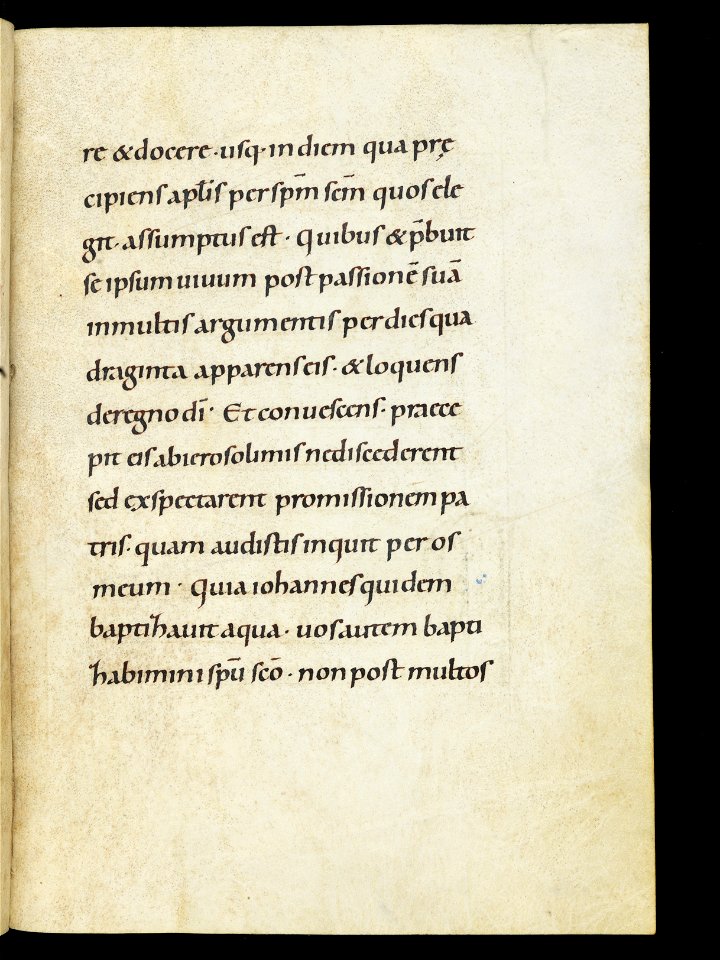 re & docere · usq· in diem qua prę
cipiens apłis per spm̄ scm̄ quos ele
git· assumptus est · Quibus & p̄buit
se ipsum uiuum post passionē suā
in multis argumentis per dies qua
draginta apparens eis · & loquens
de regno dī · Et conuescens · praece
pit eis ab ierosolimis ne discederent
sed exspectarent promissionem pa
tris · quam audistis inquit per os
meum · Quia iohannes quidem
baptizauit aqua · uos autem bapti
zabimini spū scō · non post multos